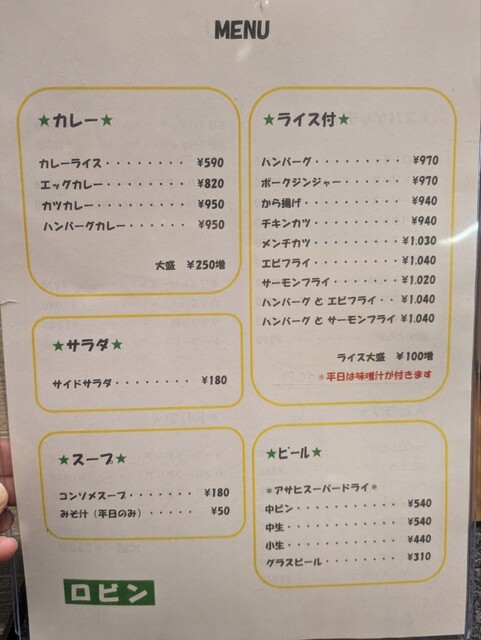 MENU
★カレー★
カレーライス・・・・・・・・ ¥590
エッグカレー・・・・・・・・ ¥820
カツカレー・・・・・・・・・ ¥950
ハンバーグカレー・・・・・・ ¥950
大盛 ¥250増
★サラダ★
サイドサラダ・・・・・・・・ ¥180
★スープ★
コンソメスープ・・・・・・・ ¥180
みそ汁（平日のみ）・・・・・ ¥50
ロビン
★ライス付★
ハンバーグ・・・・・・・・・ ¥970
ポークジンジャー・・・・・・ ¥970
から揚げ・・・・・・・・・・ ¥940
チキンカツ・・・・・・・・・ ¥940
メンチカツ・・・・・・・・・¥1.030
エビフライ・・・・・・・・・¥1.040
サーモンフライ・・・・・・・¥1.020
ハンバーグ と エビフライ・・¥1.040
ハンバーグ と サーモンフライ ¥1.040
ライス大盛 ¥100増
＊平日は味噌汁が付きます
★ビール★
＊アサヒスーパードライ＊
中ビン・・・・・・・・・・・ ¥540
中生・・・・・・・・・・・・ ¥540
小生・・・・・・・・・・・・ ¥440
グラスビール・・・・・・・・ ¥310